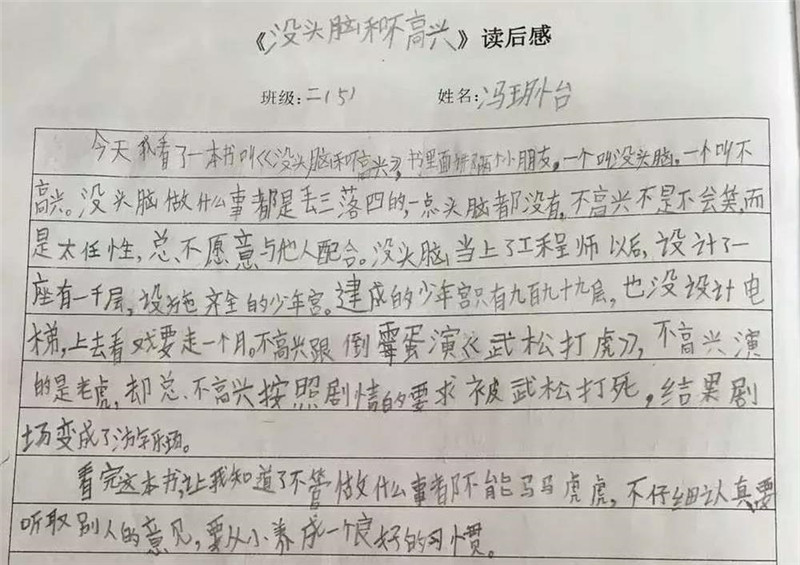 《没头脑和不高兴》读后感
班级:二(5) 姓名:冯玥台
今天我看了一本书叫《没头脑和不高兴》,书里面讲了两个小朋友,一个叫没头脑,一个叫不
高兴。没头脑做什么事都是丢三落四的,一点头脑都没有,不高兴不是不会笑,而
是太任性,总不愿意与他人配合。没头脑当上了工程师以后,设计了一
座有一千层,设施齐全的少年宫。建成的少年宫只有九百九十九层,也没设计电
梯,上去看戏要走一个月。不高兴跟倒霉蛋演《武松打虎》,不高兴演
的是老虎,却总不高兴按照剧情的要求被武松打死,结果剧
场变成了游乐场。
看完这本书,让我知道了不管做什么事都不能马马虎虎,不仔细认真要
听取别人的意见,要从小养成一个良好的习惯。